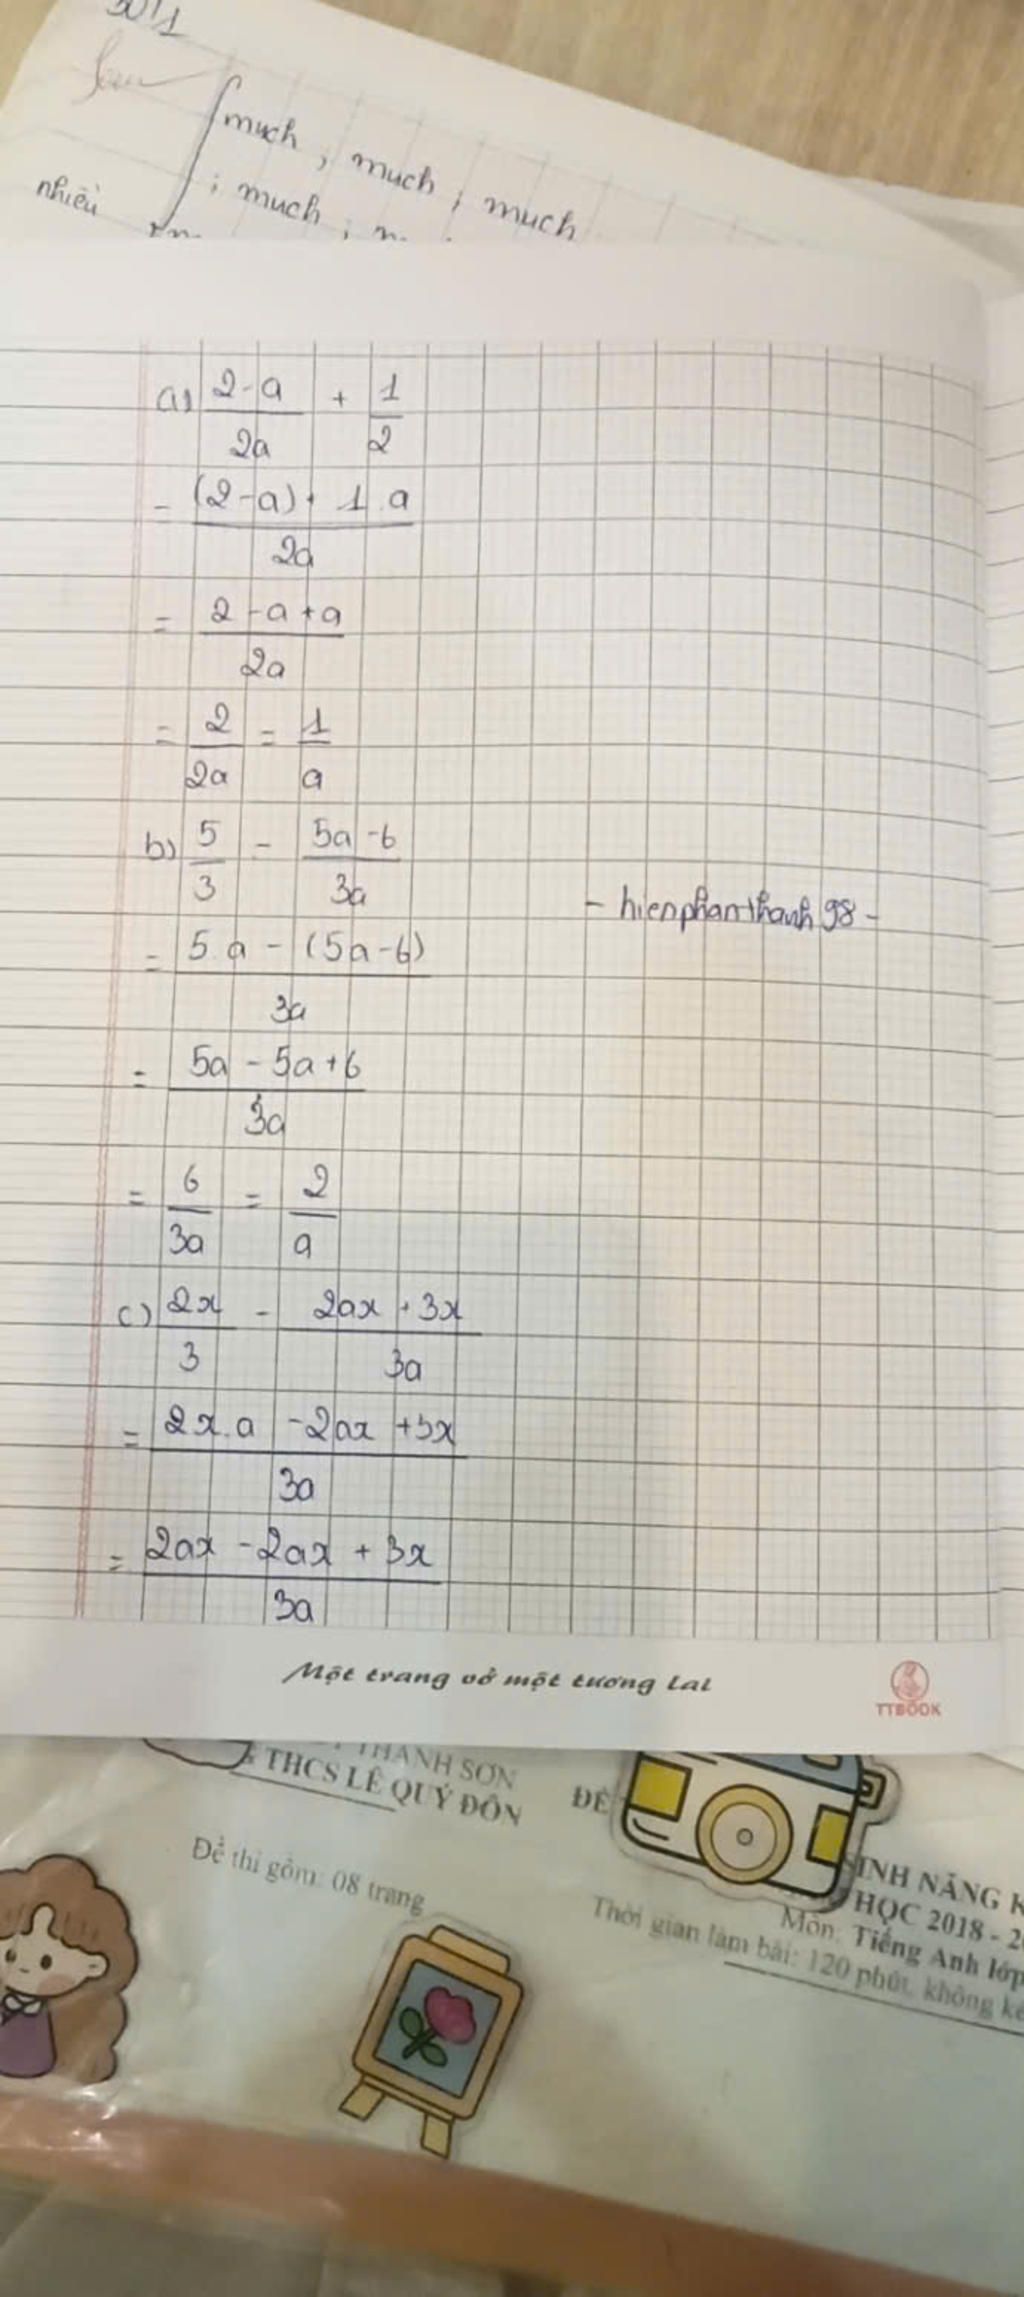 much, much, much
nhiều ; much ;
a) (2-a)/2a + 1/2
= ((2-a) + 1.a)/2a
= (2-a+a)/2a
= 2/2a = 1/a
b) 5/3 - (5a-6)/3a
- hienphamthanh98 -
= (5.a - (5a-6))/3a
= (5a - 5a+6)/3a
= 6/3a = 2/a
c) 2x/3 - (2ax + 3x)/3a
= (2x.a - 2ax + 3x)/3a
= (2ax - 2ax + 3x)/3a
Một trang vở một tương lai
TTBOOK
THANH SƠN
THCS LÊ QUÝ ĐÔN
ĐỀ
Đề thi gồm: 08 trang
SINH NĂNG K
HỌC 2018 - 2
Môn: Tiếng Anh lớp
Thời gian làm bài: 120 phút, không kể